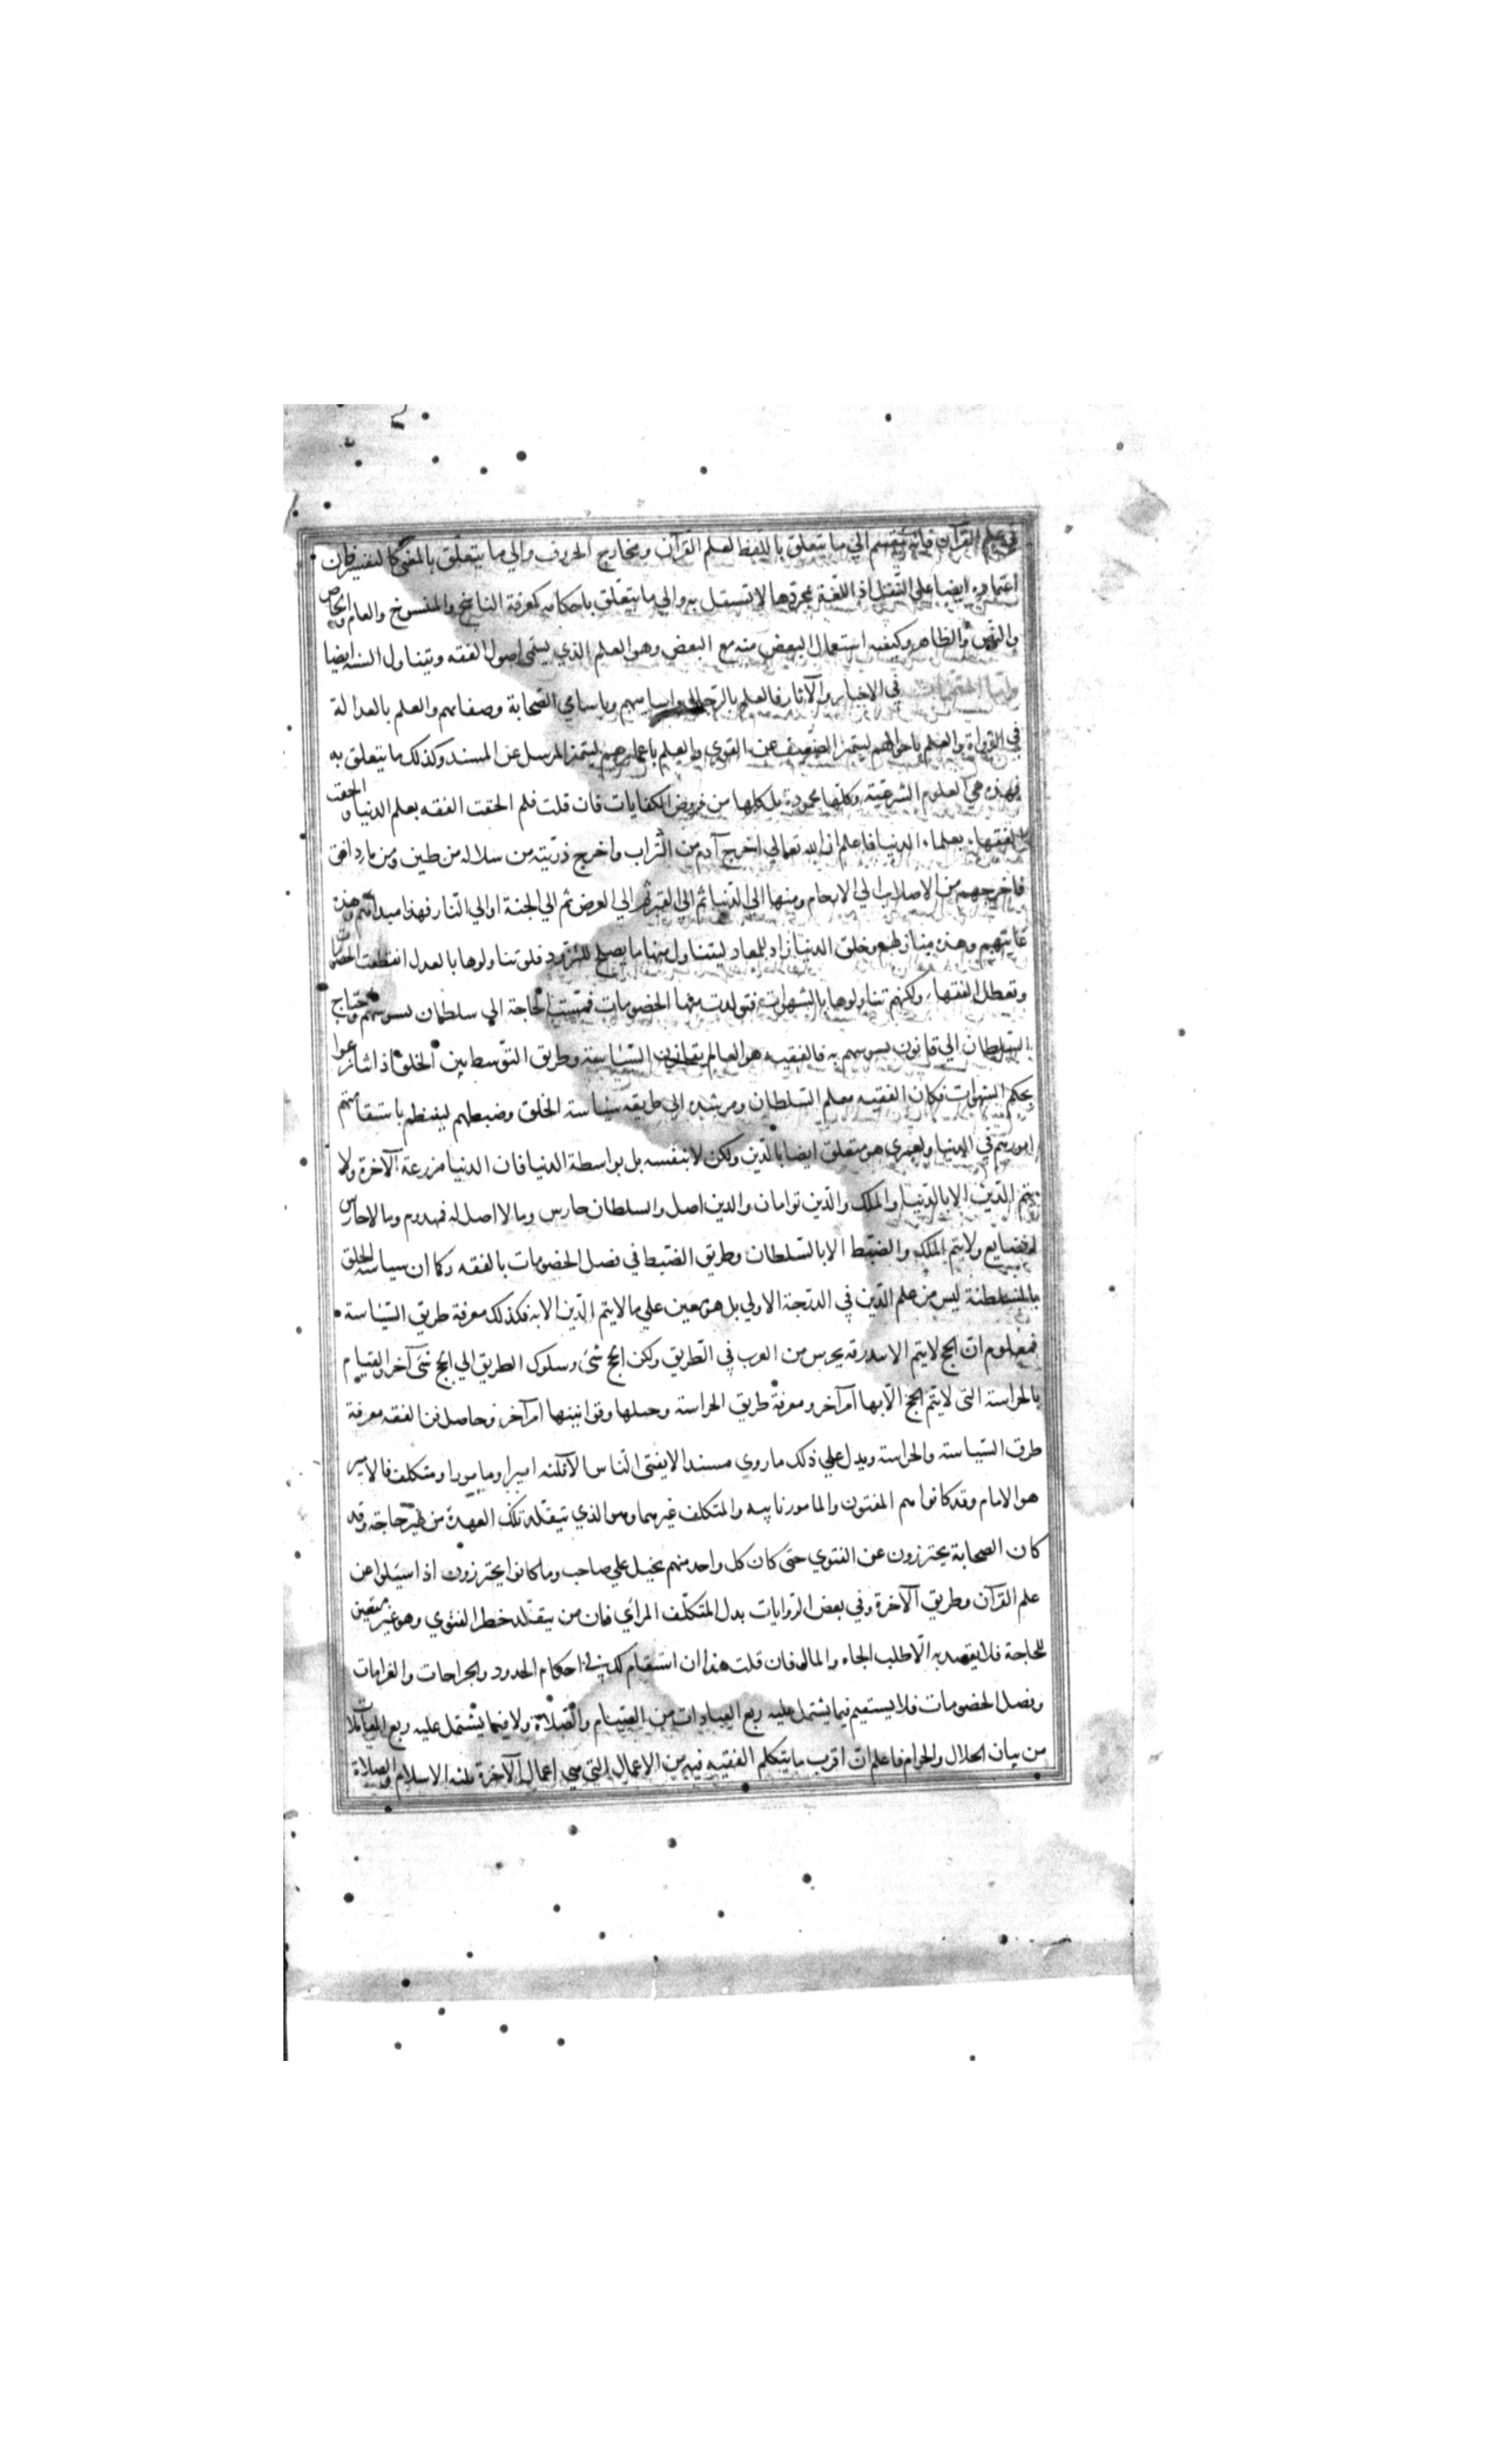 في علم القرآن فانه ينقسم الي ما يتعلق باللفظ لعلم القرآن ومخارج الحروف والي ما يتعلق بالمعني كالتفسير فان
اعتماده ايضا علي النقل اذ اللغة بمجردها لا تستقل به والي ما يتعلق باحكامه كمعرفة الناسخ والمنسوخ والعام والخاص
والنص والظاهر وكيفيه استعمال البعض منه مع البعض وهو العلم الذي يسمي اصول الفقه ويتناول السنه ايضا
واما المتممات في الاخبار والآثار فالعلم بالرجال واساميهم وباسامي الصحابة وصفاتهم والعلم بالعدالة
في الرواة والعلم باحوالهم ليتميز الضعيف عن القوي والعلم باعمارهم ليتميز المرسل عن المسند وكذلك ما يتعلق به
فهذه هي العلوم الشرعية وكلها محمودة بل كلها من فروض الكفايات فان قلت فلم الحقت الفقه بعلم الدنيا والحقت
الفقهاء بعلماء الدنيا فاعلم ان الله تعالي اخرج آدم من التراب واخرج ذريته من سلاله من طين ومن ما دافق
فاخرجهم من الاصلاب الي الارحام ومنها الي الدنيا ثم الي القبر ثم الي العرض ثم الي الجنة او الي النار فهذا مبداهم وهذه
غايتهم وهذه منازلهم وخلق الدنيا زاد للمعاد ليتناول منها ما يصلح للتزود فلو تناولوها بالعدل انقطعت الخصومات
وتعطل الفقهاء ولكنهم تناولوها بالشهوات فتولدت منها الخصومات فمست الحاجة الي سلطان يسوسهم واحتاج
السلطان الي قانون يسوسهم به فالفقيه هو العالم بقانون السياسة وطريق التوسط بين الخلق اذا تنازعوا
بحكم الشهوات فكان الفقيه معلم السلطان ومرشده الي طريقه سياسة الخلق وضبطهم لينتظم باستقامتهم
امورهم في الدنيا ولعمري هو متعلق ايضا بالدين ولكن لا بنفسه بل بواسطة الدنيا فان الدنيا مزرعة الآخرة ولا
يتم الدين الا بالدنيا والملك والدين توامان والدين اصل والسلطان حارس وما لا اصل له فمهدوم وما لا حارس
له فضايع ولا يتم الملك والضبط الا بالسلطان وطريق الضبط في فصل الخصومات بالفقه وكما ان سياسة الخلق
بالسلطنة ليس من علم الدين في الدرجة الاولي بل هو معين علي ما لا يتم الدين الا به فكذلك معرفة طريق السياسة
فمعلوم ان الحج لا يتم الا ببدرقه يحرس من العرب في الطريق ولكن الحج شئ وسلوك الطريق الي الحج شئ آخر والقيام
بالحراسة التي لا يتم الحج الا بها امر آخر ومعرفة طريق الحراسة وحيلها وقوانينها امر آخر وحاصل فن الفقه معرفة
طرق السياسة والحراسة ويدل علي ذلك ما روي مسندا لا يفتي الناس الا ثلثه امير او مامور او متكلف فالامير
هو الامام وقد كانوا هم المفتون والمامور نايبه والمتكلف غيرهما وهو الذي يتقلد تلك العهدة من غير حاجة وقد
كان الصحابة يحترزون عن الفتوي حتى كان كل واحد منهم يحيل علي صاحب وما كانوا يحترزون اذا سيلوا عن
علم القرآن وطريق الآخرة وفي بعض الروايات بدل المتكلف المرائي فان من يتقلد خطر الفتوي وهو غير متعين
للحاجة فلا يقصد به الا طلب الجاه والمال فان قلت هذا ان استقام لك في احكام الحدود والجراحات والغرامات
وفصل الخصومات فلا يستقيم فيما يشتمل عليه ربع العبادات من الصيام والصلاة ولا فيما يشتمل عليه ربع المعاملات
من بيان الحلال والحرام فاعلم ان اقرب ما يتكلم الفقيه فيه من الاعمال التي هي اعمال الآخرة ثلثه الاسلام والصلاة